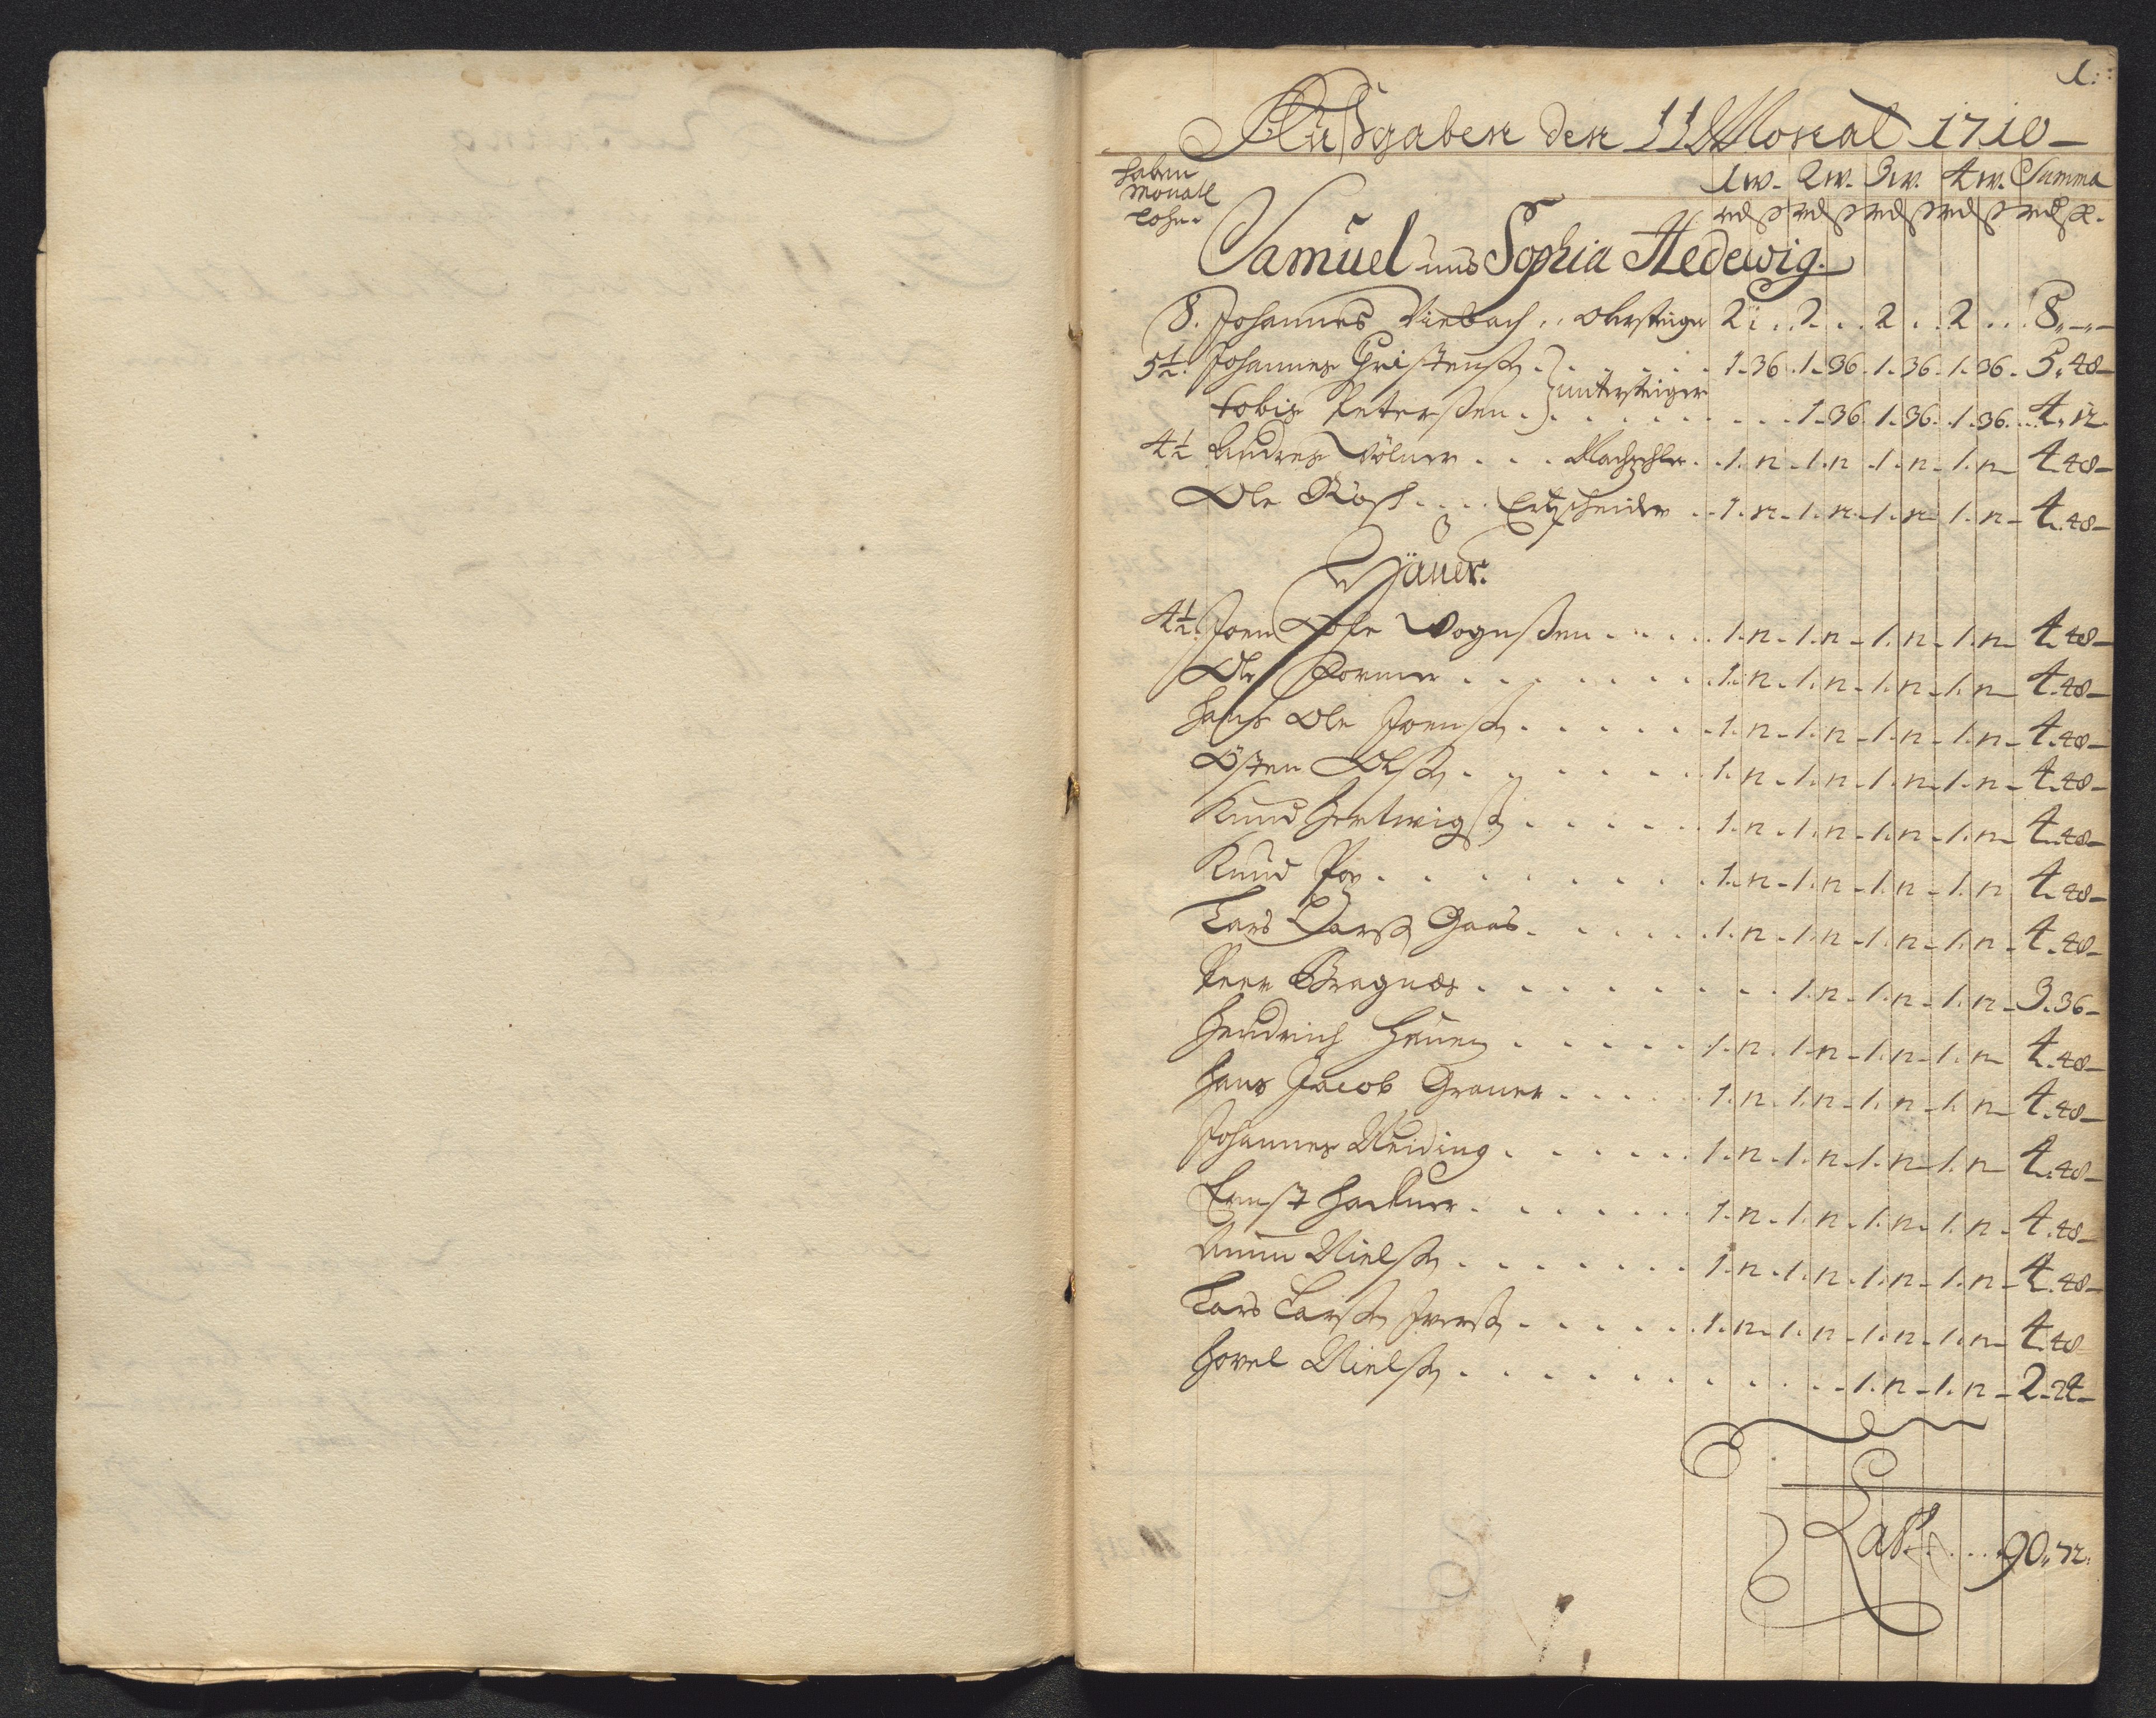 1.
Ausgaben den 11 Monat 1710
haben Monatl Lohn
1 w. 2 w. 3 w. 4 w. Summa
rd ß rd ß rd ß rd ß rd ß
Samuel und Sophia Hedewig.
8. Johannes Viebach .. obersteiger 2 . . 2 . . 2 . . 2 . . . 8.-.-
5½. Johannes Christensen . . . 1.36. 1.36. 1.36. 1.36. 5.48-
Tobis Petersen . . untersteiger . . . 1.36. 1.36. 1.36. 4.12.
4½ Andres . . . 1.12. 1.12. 1.12. 1.12. 4.48-
Ole . . . . Ertzscheider . . 1.12. 1.12. 1.12. 1.12. 4.48-
Häuer.
4½. Joen Ole Wognsen . . . . 1.12. 1.12. 1.12. 1.12. 4.48-
Ole . . . . . 1.12. 1.12. 1.12. 1.12. 4.48-
Hans Ole Joensen . . . . . 1.12. 1.12. 1.12. 1.12. 4.48-
Östen Olsen . . . . . 1.12. 1.12. 1.12. 1.12. 4.48-
Knud Hertwigsen . . . . . 1.12. 1.12. 1.12. 1.12. 4.48-
Knud . . . . . 1.12. 1.12. 1.12. 1.12. 4.48-
Lars Larsen Gaas . . . . . 1.12. 1.12. 1.12. 1.12. 4.48-
Peer Bragnæs . . . . . 1.12. 1.12. 1.12. 3.36-
Hendrich . . . . . 1.12. 1.12. 1.12. 1.12. 4.48-
Hans Jacob Graner . . . . . 1.12. 1.12. 1.12. 1.12. 4.48-
Johannes Neiding . . . . . 1.12. 1.12. 1.12. 1.12. 4.48-
Ernst . . . . . 1.12. 1.12. 1.12. 1.12. 4.48-
Nielsen . . . . . 1.12. 1.12. 1.12. 1.12. 4.48-
Lars Larsen Iversen . . . . . 1.12. 1.12. 1.12. 1.12. 4.48
Hovel Nielsen . . . . . 1.12. 1.12. 2.24-
Lat. . . . . 90.72.